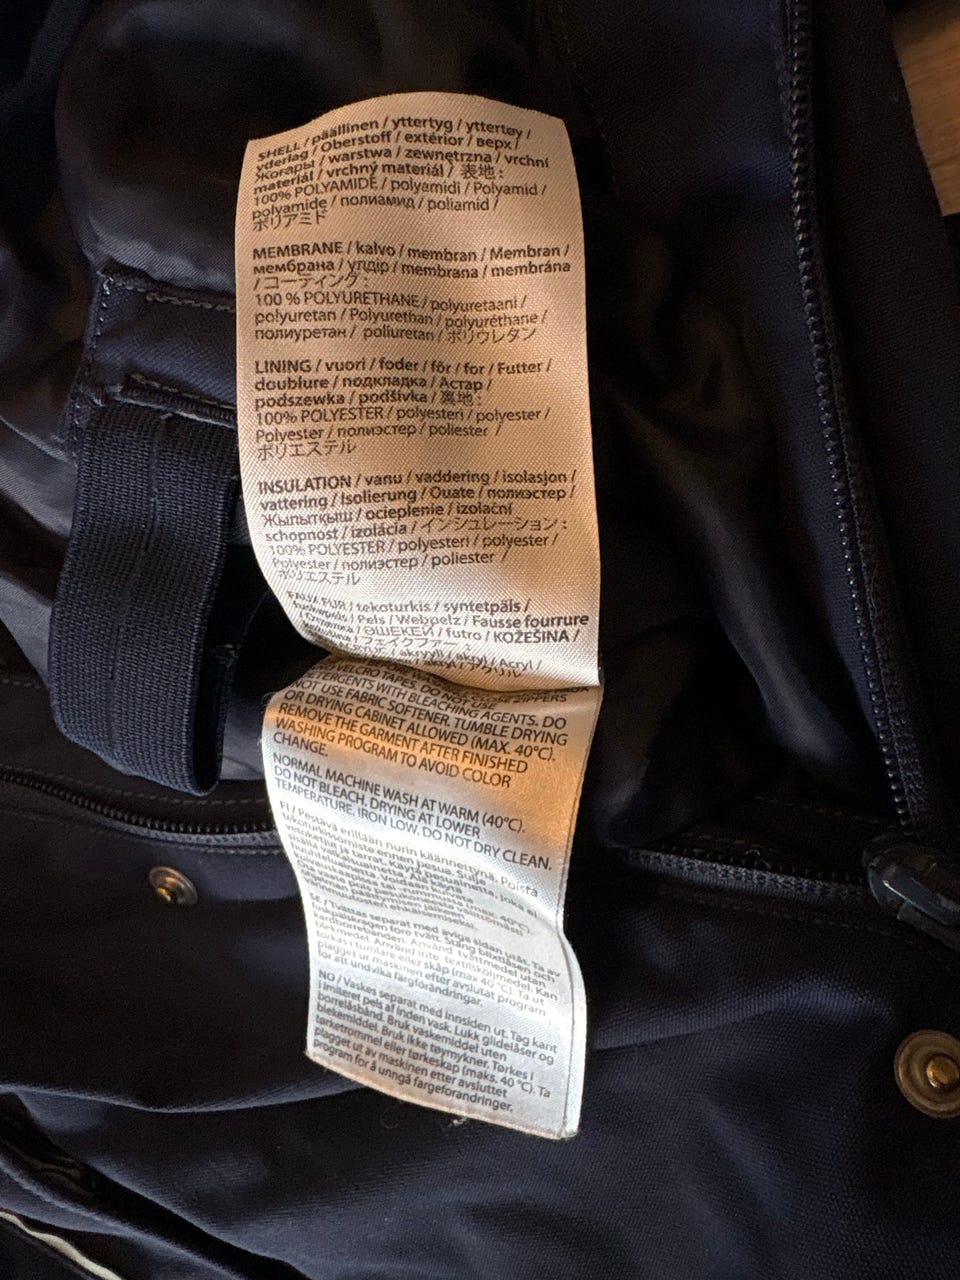 SHELL / päällinen / yttertyg / yttertøy /
yderlag / Oberstoff / extérior / верх /
Жоғары / warstwa / zewnętrzna / vrchní
materiál / vrchný materiál / 表地 :
100% POLYAMIDE / polyamidi / Polyamid /
polyamide / полиамид / poliamid /
ポリアミド
MEMBRANE / kalvo / membran / Membran /
мембрана / үлдір / membrana / membrána
/ コーティング :
100 % POLYURETHANE / polyuretaani /
polyuretan / Polyurethan / polyuréthane /
полиуретан / poliuretan / ポリウレタン
LINING / vuori / foder / fôr / for / Futter /
doublure / подкладка / Астар /
podszewka / podšívka / 裏地 :
100% POLYESTER / polyesteri / polyester /
Polyester / полиэстер / poliester /
ポリエステル
INSULATION / vanu / vaddering / isolasjon /
vattering / Isolierung / Ouate / полиэстер /
Жылытқыш / ocieplenie / izolační
schopnost / izolácia / インシュレーション :
100% POLYESTER / polyesteri / polyester /
Polyester / полиэстер / poliester /
ポリエステル
FAUX FUR / tekoturkis / syntetpäls /
/ Pels / Webpelz / Fausse fourrure
/ ӨШЕКЕЙ / futro / KOŽEŠINA /
/ フェイクファー :
/ akryyli / akryl / Acryl /
VELCRO TAPES. DO NOT USE
DETERGENTS WITH BLEACHING AGENTS. DO
NOT USE FABRIC SOFTENER. TUMBLE DRYING
OR DRYING CABINET ALLOWED (MAX. 40°C).
REMOVE THE GARMENT AFTER FINISHED
WASHING PROGRAM TO AVOID COLOR
CHANGE.
NORMAL MACHINE WASH AT WARM (40°C).
DO NOT BLEACH. DRYING AT LOWER
TEMPERATURE. IRON LOW. DO NOT DRY CLEAN.
FI / Pestävä erillään nurin käännettynä. Poista
tekoturkissomiste ennen pesua. Sulje
vetoketjut ja tarrat. Käytä pesuainetta, joka ei
sisällä valkaisuainetta. Älä käytä
huuhteluainetta. Voidaan kuivata
kuivauskaapissa tai -rummussa (max. 40°C).
SE / Tvättas separat med avigsidan utåt. Ta av
fuskpälskragen före tvätt. Stäng blixtlåsen och
kardborrebanden. Använd tvättmedel utan
blekmedel. Använd inte textilsköljmedel. Kan
torkas i tumlare eller skåp (max 40 °C). Ta ut
plagget ur maskinen efter avslutat program
för att undvika färgförändringar.
NO / Vaskes separat med innsiden ut. Tag kant
i imiteret pels af inden vask. Lukk glidelåser og
borrelåsbånd. Bruk vaskemiddel uten
blekemiddel. Bruk ikke tøymykner. Tørkes i
tørketrommel eller tørkeskap (maks. 40 °C). Ta
plagget ut av maskinen etter avsluttet
program for å unngå fargeforandringer.